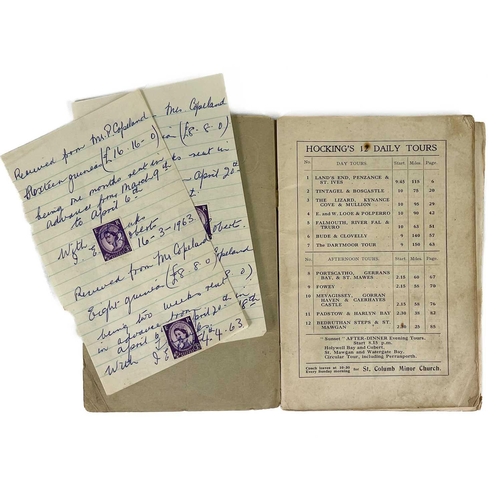 Received from Mr P. Copeland
Sixteen guineas (£16-16-0)
being one months rent in
advance from March 9th
to April 6th
With
16-3-1963
Received from Mr Copeland
Eight guineas (£8.8.0)
being two weeks rent
in advance from
April
With
4-4-63
Mrs Copeland
(£8-8-0)
rent in
April 20th
HOCKING'S 12 DAILY TOURS
No. DAY TOURS Start Miles Page
1 LAND'S END, PENZANCE & ST. IVES 9.45 6
2 TINTAGEL & BOSCASTLE 10 78 20
3 THE LIZARD, KYNANCE COVE & MULLION 10 29
4 E. and W. LOOE & POLPERRO 10 90 42
5 FALMOUTH, RIVER FAL & TRURO 10 51
6 BUDE & CLOVELLY 9 57
7 The DARTMOOR TOUR 9 63
No. AFTERNOON TOURS Start Miles Page
8 PORTSCATHO, GERRANS BAY, & ST. MAWES 2.15 60 67
9 FOWEY 2.15
10 MEVAGISSEY, GORRAN HAVEN & CAERHAYES CASTLE 2.15 76
11 PADSTOW & HARLYN BAY 2.30 82
12 BEDRUTHAN STEPS & ST. MAWGAN 2.30 25
"Sunset" AFTER-DINNER Evening Tours.
Start 8.15 p.m.
Holywell Bay and Cubert.
St. Mawgan and Watergate Bay.
Circular Tour, including Perranporth.
Coach leaves at 10.40 Every Sunday morning for St. Columb Minor Church.